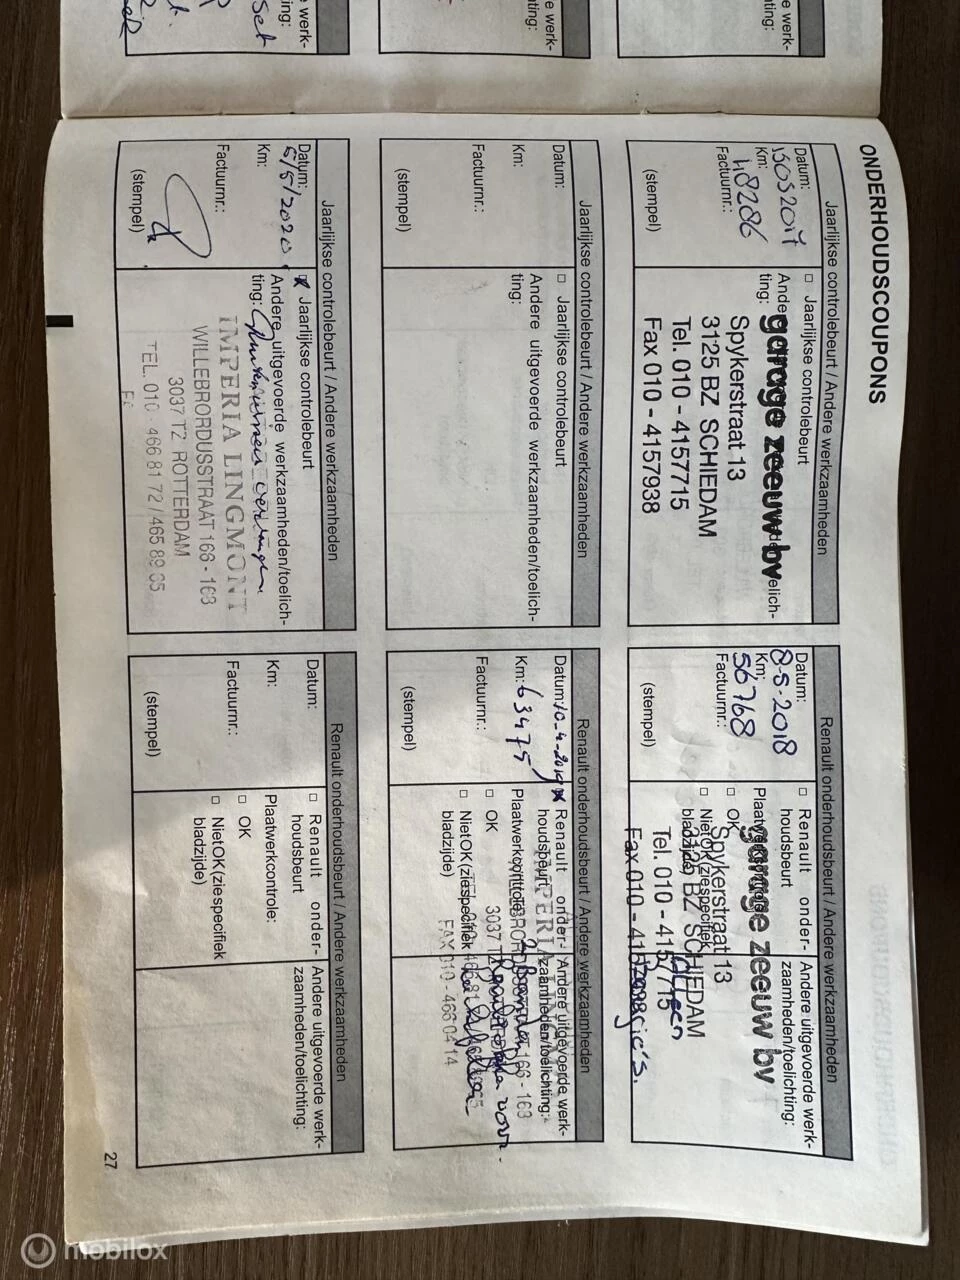 ONDERHOUDSCOUPONS
Jaarlijkse controlebeurt / Andere werkzaamheden
Datum:
15052017
Km:
48286
Factuurnr.:
(stempel)
□ Jaarlijkse controlebeurt
ting:
garage zeeuw bv
Spykerstraat 13
3125 BZ SCHIEDAM
Tel. 010 - 4157715
Fax 010 - 4157938
Renault onderhoudsbeurt / Andere werkzaamheden
Datum:
8-5-2018
Km:
56768
Factuurnr.:
(stempel)
□ Renault onder-
houdsbeurt
Plaatwerkcontrole:
□ OK
□ NietOK(ziespecifiek
bladzijde)
Andere uitgevoerde werk-
zaamheden/toelichting:
garage zeeuw bv
Spykerstraat 13
3125 BZ SCHIEDAM
Tel. 010 - 4157715
Fax 010 - 4157938
Jaarlijkse controlebeurt / Andere werkzaamheden
Datum:
Km:
Factuurnr.:
(stempel)
□ Jaarlijkse controlebeurt
Andere uitgevoerde werkzaamheden/toelich-
ting:
Renault onderhoudsbeurt / Andere werkzaamheden
Datum:
Km: 63475
Factuurnr.:
(stempel)
Renault onder-
houdsbeurt
Plaatwerkcontrole:
□ OK
□ NietOK(ziespecifiek
bladzijde)
Andere uitgevoerde werk-
zaamheden/toelichting:
FAX 010 - 466 04 14
Jaarlijkse controlebeurt / Andere werkzaamheden
Datum:
5/5/2020
Km:
Factuurnr.:
(stempel)
Jaarlijkse controlebeurt
Andere uitgevoerde werkzaamheden/toelich-
ting:
IMPERIA LINGMONT
WILLEBRORDUSSTRAAT 166 - 163
3037 TZ ROTTERDAM
TEL. 010 - 466 81 72 / 465 89 65
Renault onderhoudsbeurt / Andere werkzaamheden
Datum:
Km:
Factuurnr.:
(stempel)
□ Renault onder-
houdsbeurt
Plaatwerkcontrole:
□ OK
□ NietOK(ziespecifiek
bladzijde)
Andere uitgevoerde werk-
zaamheden/toelichting:
27
mobilox